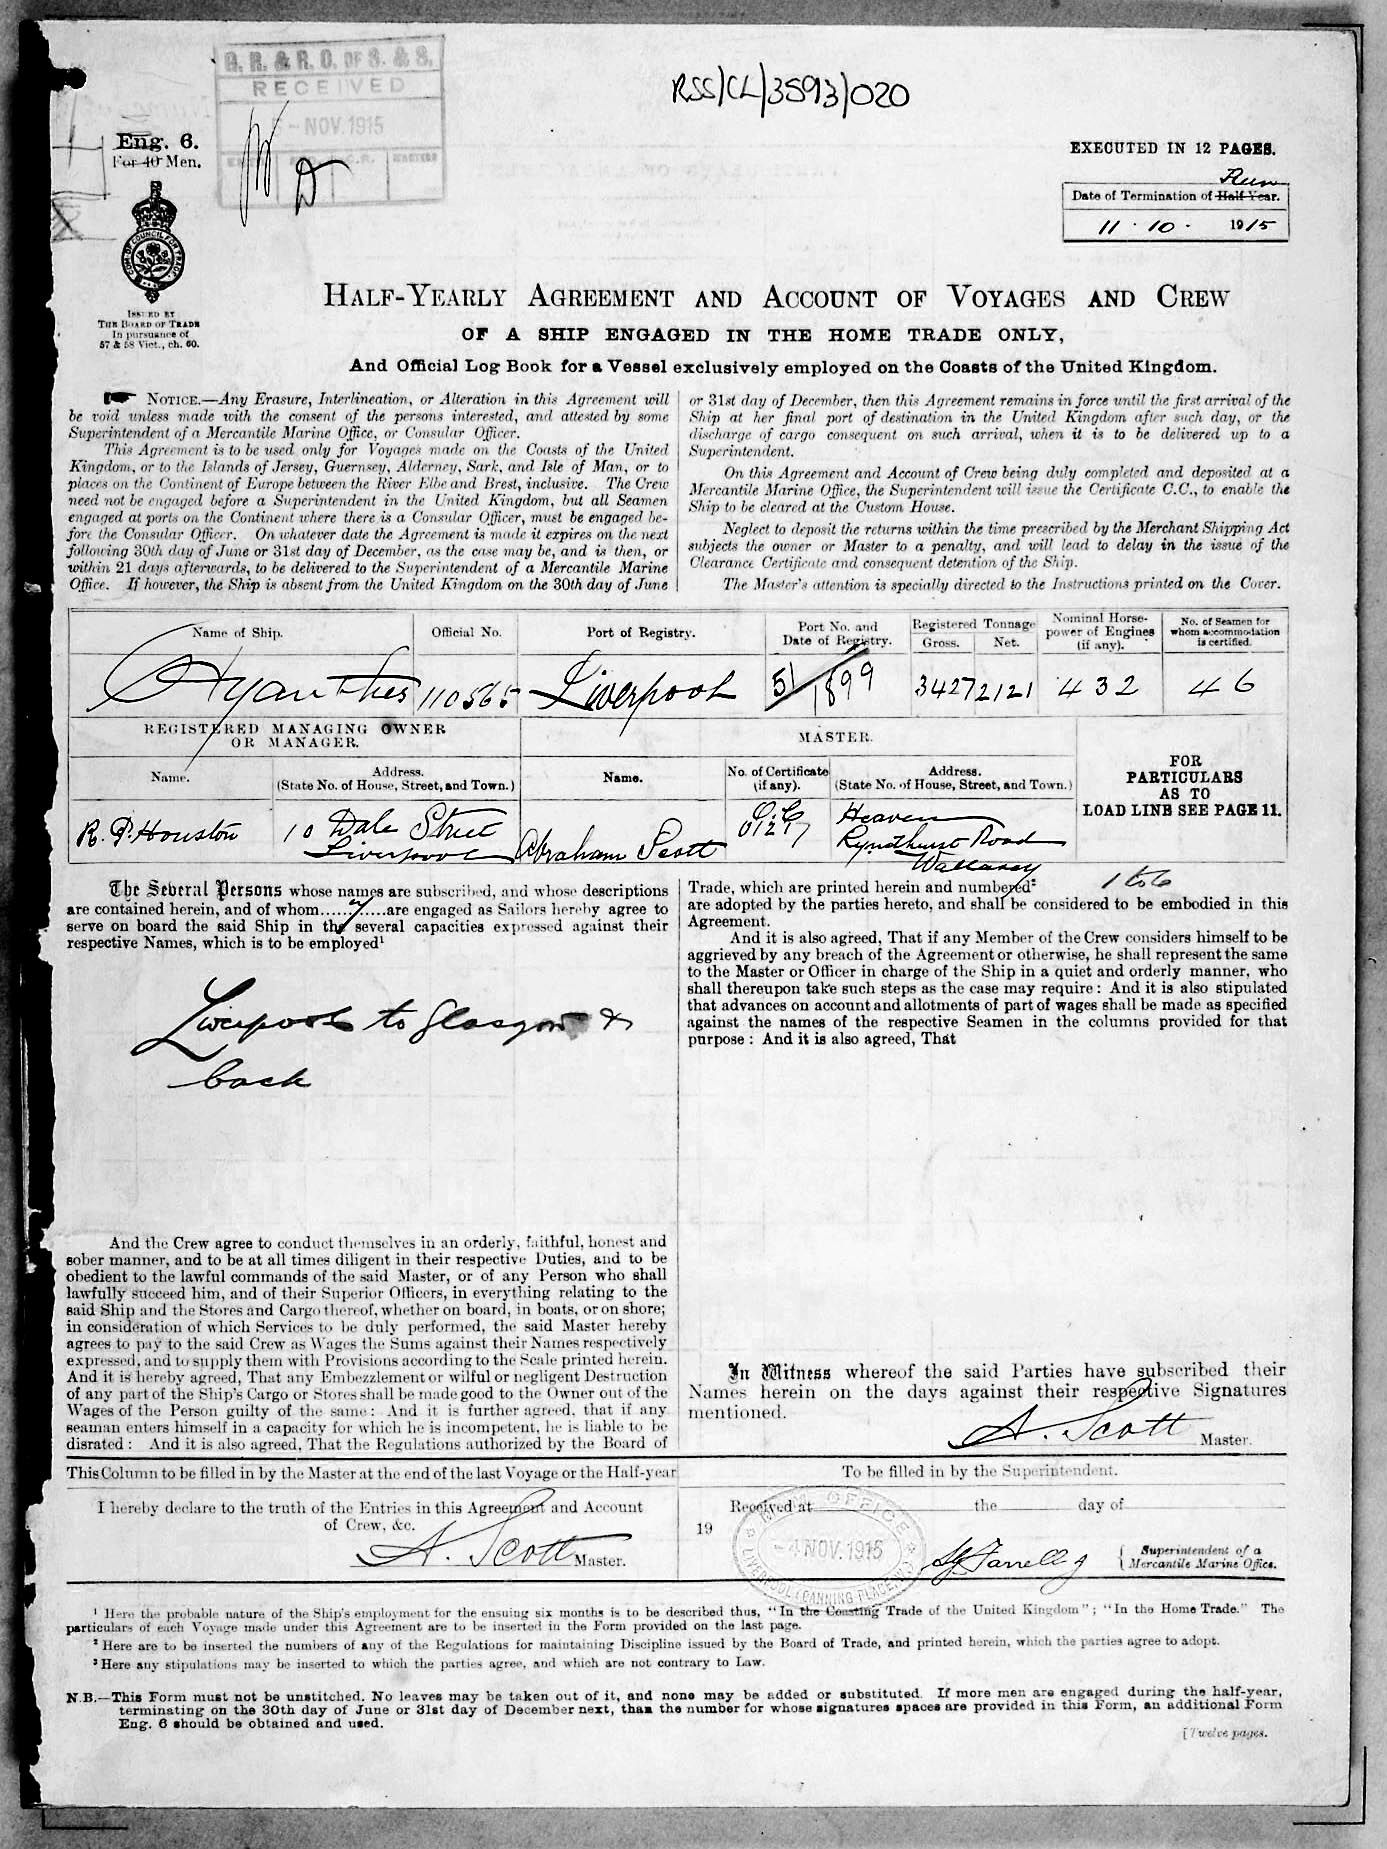 RSS/CL/3593/020
G. R. & R. O. OF S. & S.
RECEIVED
- NOV. 1915
Eng. 6.
For 40 Men.
EXECUTED IN 12 PAGES.
Run
Date of Termination of Half Year.
11 . 10 . 1915
COM. OF COUNCIL FOR TRADE
ISSUED BY
THE BOARD OF TRADE
In pursuance of
57 & 58 Vict., ch. 60.
HALF-YEARLY AGREEMENT AND ACCOUNT OF VOYAGES AND CREW
OF A SHIP ENGAGED IN THE HOME TRADE ONLY,
And Official Log Book for a Vessel exclusively employed on the Coasts of the United Kingdom.
NOTICE.—Any Erasure, Interlineation, or Alteration in this Agreement will
be void unless made with the consent of the persons interested, and attested by some
Superintendent of a Mercantile Marine Office, or Consular Officer.
This Agreement is to be used only for Voyages made on the Coasts of the United
Kingdom, or to the Islands of Jersey, Guernsey, Alderney, Sark, and Isle of Man, or to
places on the Continent of Europe between the River Elbe and Brest, inclusive. The Crew
need not be engaged before a Superintendent in the United Kingdom, but all Seamen
engaged at ports on the Continent where there is a Consular Officer, must be engaged be-
fore the Consular Officer. On whatever date the Agreement is made it expires on the next
following 30th day of June or 31st day of December, as the case may be, and is then, or
within 21 days afterwards, to be delivered to the Superintendent of a Mercantile Marine
Office. If however, the Ship is absent from the United Kingdom on the 30th day of June
or 31st day of December, then this Agreement remains in force until the first arrival of the
Ship at her final port of destination in the United Kingdom after such day, or the
discharge of cargo consequent on such arrival, when it is to be delivered up to a
Superintendent.
On this Agreement and Account of Crew being duly completed and deposited at a
Mercantile Marine Office, the Superintendent will issue the Certificate C.C., to enable the
Ship to be cleared at the Custom House.
Neglect to deposit the returns within the time prescribed by the Merchant Shipping Act
subjects the owner or Master to a penalty, and will lead to delay in the issue of the
Clearance Certificate and consequent detention of the Ship.
The Master's attention is specially directed to the Instructions printed on the Cover.
Name of Ship. Official No. Port of Registry. Port No. and Date of Registry. Registered Tonnage Gross. Net. Nominal Horse-power of Engines (if any). No. of Seamen for whom accommodation is certified.
Hyanthes 110565 Liverpool 51/1899 3427 2121 432 46
REGISTERED MANAGING OWNER
OR MANAGER.
MASTER.
Name. Address. (State No. of House, Street, and Town.) Name. No. of Certificate (if any). Address. (State No. of House, Street, and Town.)
FOR
PARTICULARS
AS TO
LOAD LINE SEE PAGE 11.
R. P. Houston 10 Dale Street
Liverpool
Abraham Scott
Lyndhurst Road
Wallasey
The Several Persons whose names are subscribed, and whose descriptions
are contained herein, and of whom............are engaged as Sailors hereby agree to
serve on board the said Ship in the several capacities expressed against their
respective Names, which is to be employed¹
Liverpool to Glasgow &
back
And the Crew agree to conduct themselves in an orderly, faithful, honest and
sober manner, and to be at all times diligent in their respective Duties, and to be
obedient to the lawful commands of the said Master, or of any Person who shall
lawfully succeed him, and of their Superior Officers, in everything relating to the
said Ship and the Stores and Cargo thereof, whether on board, in boats, or on shore;
in consideration of which Services to be duly performed, the said Master hereby
agrees to pay to the said Crew as Wages the Sums against their Names respectively
expressed, and to supply them with Provisions according to the Scale printed herein.
And it is hereby agreed, That any Embezzlement or wilful or negligent Destruction
of any part of the Ship's Cargo or Stores shall be made good to the Owner out of the
Wages of the Person guilty of the same: And it is further agreed, that if any
seaman enters himself in a capacity for which he is incompetent, he is liable to be
disrated: And it is also agreed, That the Regulations authorized by the Board of
Trade, which are printed herein and numbered² 1 to 6
are adopted by the parties hereto, and shall be considered to be embodied in this
Agreement.
And it is also agreed, That if any Member of the Crew considers himself to be
aggrieved by any breach of the Agreement or otherwise, he shall represent the same
to the Master or Officer in charge of the Ship in a quiet and orderly manner, who
shall thereupon take such steps as the case may require: And it is also stipulated
that advances on account and allotments of part of wages shall be made as specified
against the names of the respective Seamen in the columns provided for that
purpose: And it is also agreed, That
In Witness whereof the said Parties have subscribed their
Names herein on the days against their respective Signatures
mentioned.
A. Scott Master.
This Column to be filled in by the Master at the end of the last Voyage or the Half-year
I hereby declare to the truth of the Entries in this Agreement and Account
of Crew, &c.
A. Scott Master.
To be filled in by the Superintendent.
Received at the day of
19
M. M. OFFICE
- 4 NOV. 1915
LIVERPOOL (CANNING PLACE)
Farrell
Superintendent of a
Mercantile Marine Office.
¹ Here the probable nature of the Ship's employment for the ensuing six months is to be described thus, "In the Coasting Trade of the United Kingdom"; "In the Home Trade." The
particulars of each Voyage made under this Agreement are to be inserted in the Form provided on the last page.
² Here are to be inserted the numbers of any of the Regulations for maintaining Discipline issued by the Board of Trade, and printed herein, which the parties agree to adopt.
³ Here any stipulations may be inserted to which the parties agree, and which are not contrary to Law.
N.B.—This Form must not be unstitched. No leaves may be taken out of it, and none may be added or substituted. If more men are engaged during the half-year,
terminating on the 30th day of June or 31st day of December next, than the number for whose signatures spaces are provided in this Form, an additional Form
Eng. 6 should be obtained and used.
[Twelve pages.